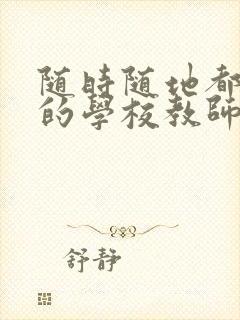 随時随地都
的學校教師
舒靜